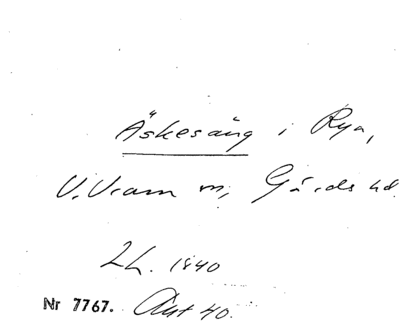 Äskesäng i Rya,
V. Vram sn, Gärds hd.
LL. 1840
Nr 7767. Akt 40.